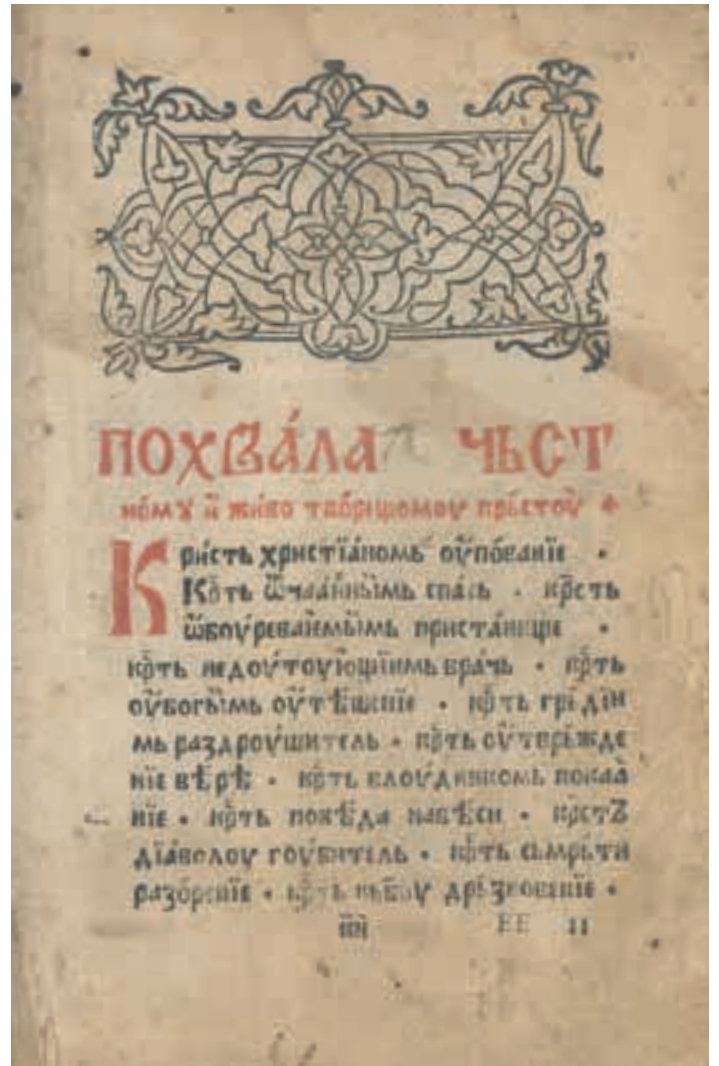 ПОХВА́ЛА ЧЬСТ
но́мꙋ и҆ жи́во твѡ́рещомоу крⷭ҇тоу҆
Кри́сть христїа́номь оу҆по́ванїе ·
Крⷭ҇ть ѿчаа́нныимь спа́сь · крⷭ҇сть
ѡ҆боуреваи́емыимь приста́нище ·
крⷭ҇ть недоу́гоующїимь вра́чь · крⷭ҇ть
оу҆богыимь оу҆тѣшенїе · крⷭ҇ть
мь раздроу́шитель · крⷭ҇ть оу҆твръжде
нїе вѣ́рѣ · крⷭ҇ть блоу́дникомь покаа̀
нїе · крⷭ҇ть побѣ́да на бѣси · крⷭ҇тъ
дїа́волоу гоу́битель · крⷭ҇ть сьмръ́ти
разо́ренїе · крⷭ҇ть дръзновенїе ·